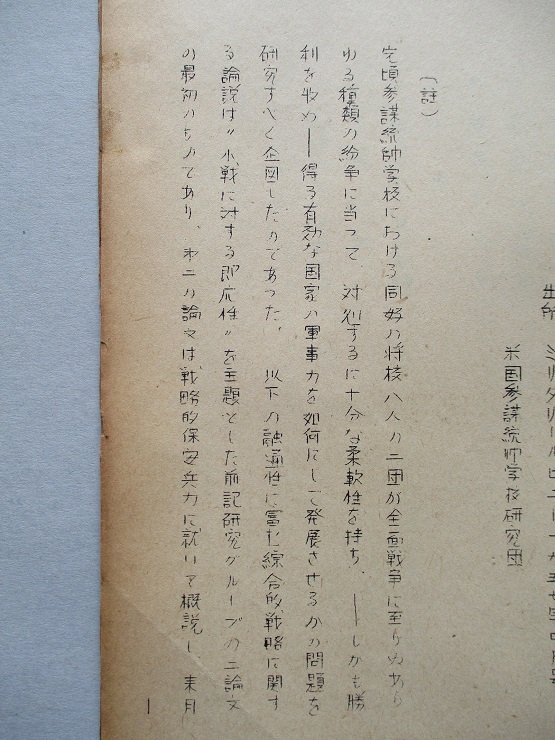 出所 ミリタリーレビュー一九五七年四月号
米国参謀統帥学校研究団
(註)
先頃参謀統帥学校における同好の将校八人の二団が全面戦争に至らぬあら
ゆる種類の紛争に当って、対処するに十分な柔軟性を持ち、――しかも勝
利を収め――得る有効な国家の軍事力を如何にして発展させるかの問題を
研究すべく企図したのであった。以下の融通性に富む綜合的戦略に関す
る論説は〃小戦に対する即応性〃を主題とした前記研究グループの二論文
の最初のものであり、第二の論文は戦略的保安兵力に就いて概説し、来月